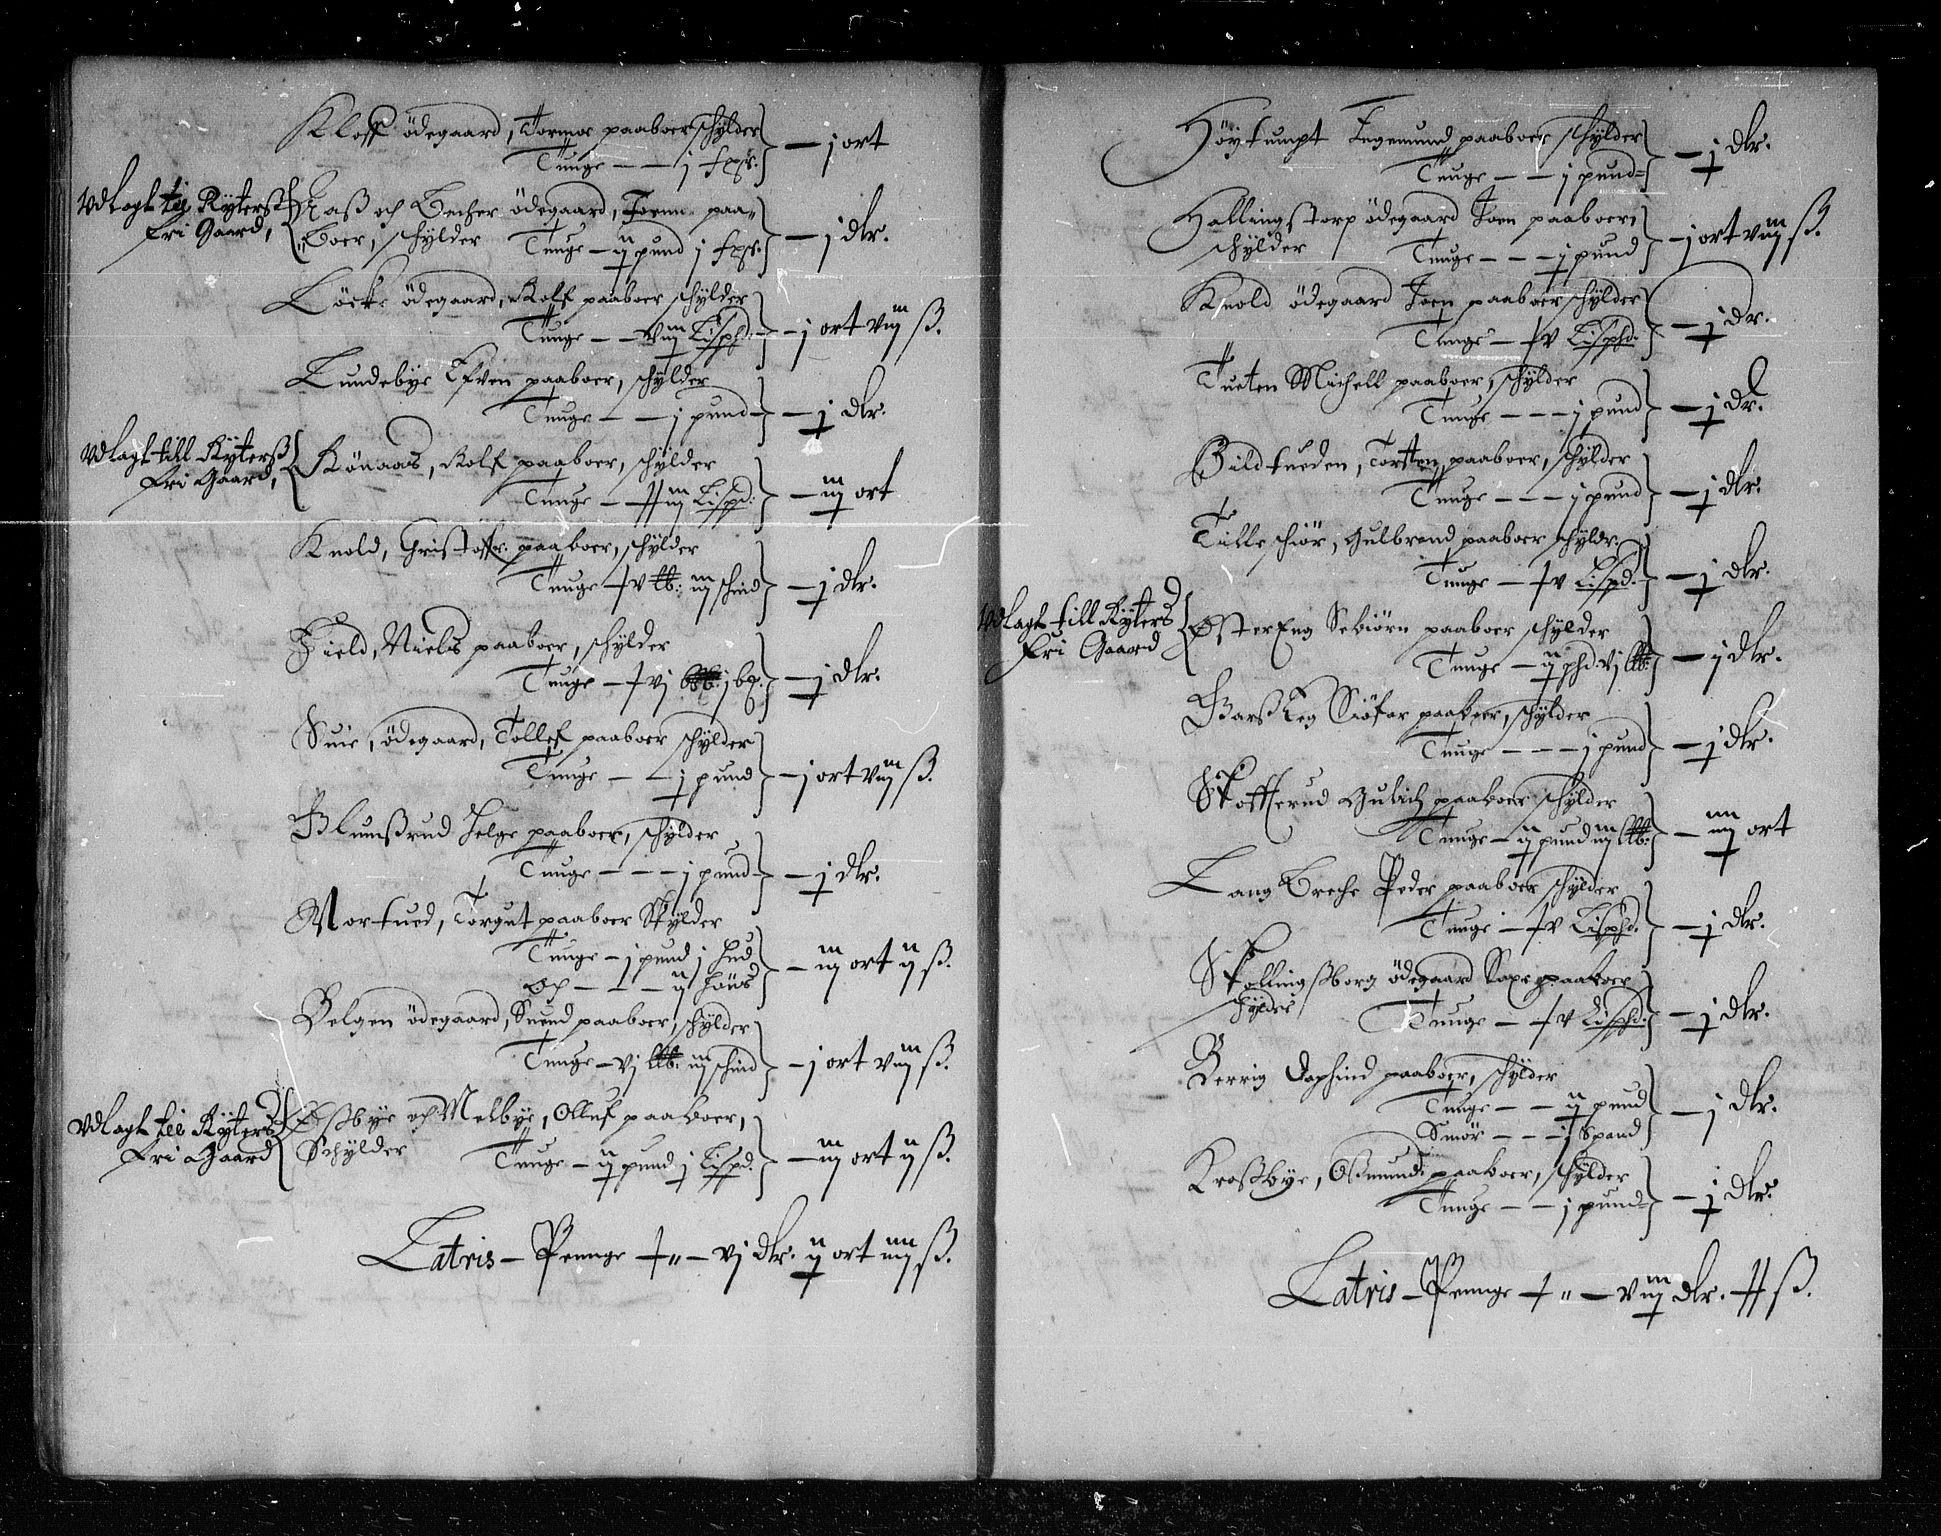 Kloff ödegaard, Tormoe paaboer schylder
Tunge — — j fpst. — j ort
Vdlagt til Ryters
Fri Gaard,
Aaß och Becher ödegaard, Joenn paa„
„boer, schylder Tunge — ij pund j fpst. — j dlr.
Löcke ödegaard, Rolf paaboer schylder
Tunge — — viij Lispd: — j ort viij ß.
Lundebye Efven paaboer, schylder
Tunge — — j pund — j dlr.
Vdlagt till Ryterß
Fri Gaard,
Rönaas, Rolf paaboer, schylder
Tunge — xiij Lispd: — iij ort
Knold, Christoffr. paaboer, schylder
Tunge — v lb: iij schind — j dlr.
Field, Niels paaboer, schylder
Tunge — vj j — j dlr.
Suie, ödegaard, Tollef paaboer schylder
Tunge — — j pund — j ort viij ß.
Blumßrud Helge paaboer, schylder
Tunge — — — j pund — j dlr.
Mortued, Torgut paaboer Skylder
Tunge — j pund j Hud
Och — — — ij Höns — iij ort ij ß.
Belgen ödegaard, Suend paaboer, schylder
Tunge — vj lb: iij schind — j ort viij ß.
Vdlagt till Ryters
Fri Gaard
Eßbye och Melbye, Olluf paaboer,
Schylder Tunge — ij pund j Lispd. — iij ort ij ß.
Latris — Pennge — vj dlr. ij ort iiij ß.
Höytumpt Ingemund paaboer schylder
Tunge — — j pund — j dlr.
Hallingstorp ödegaard Joen paaboer,
schylder Tunge — — — j pund — j ort viij ß.
Knold ödegaard Joen paaboer schylder
Tunge — v Lisphd. — j dr.
Tueten Michell paaboer, schylder
Tunge — — — j pund — j dr.
Bildtueden, Torsten paaboer, schylder
Tunge — — — j pund — j dlr.
Tilleschiör, Gulbrand paaboer schyldr.
Tunge — v Lispd: — j dlr.
Vdlagt till Ryters
Fri Gaard
Øster Eng Sebiörn paaboer schylder
Tunge — ij phd vj lb: — j dlr.
Garß Eeg Siöfar paaboer, schylder
Tunge — — — j pund — j dlr.
Skotterud Gulich paaboer schylder
Tunge — ij pund iij lb: — iiij ort
Lang Breche Peder paaboer schylder
Tunge — v Lisphd. — j dlr.
Skollingßborg ödegaard Saxe paaboer
schylder Tunge — v Lisphd. — j dlr.
Berrig Daphind paaboer, schylder
Tunge — — ij pund
Smör — — — j Spand — j dlr.
Kroßbye, Oßmund paaboer, schylder
Tunge — — j pund — j dlr.
Latris — Pennge — viij dlr. ß.